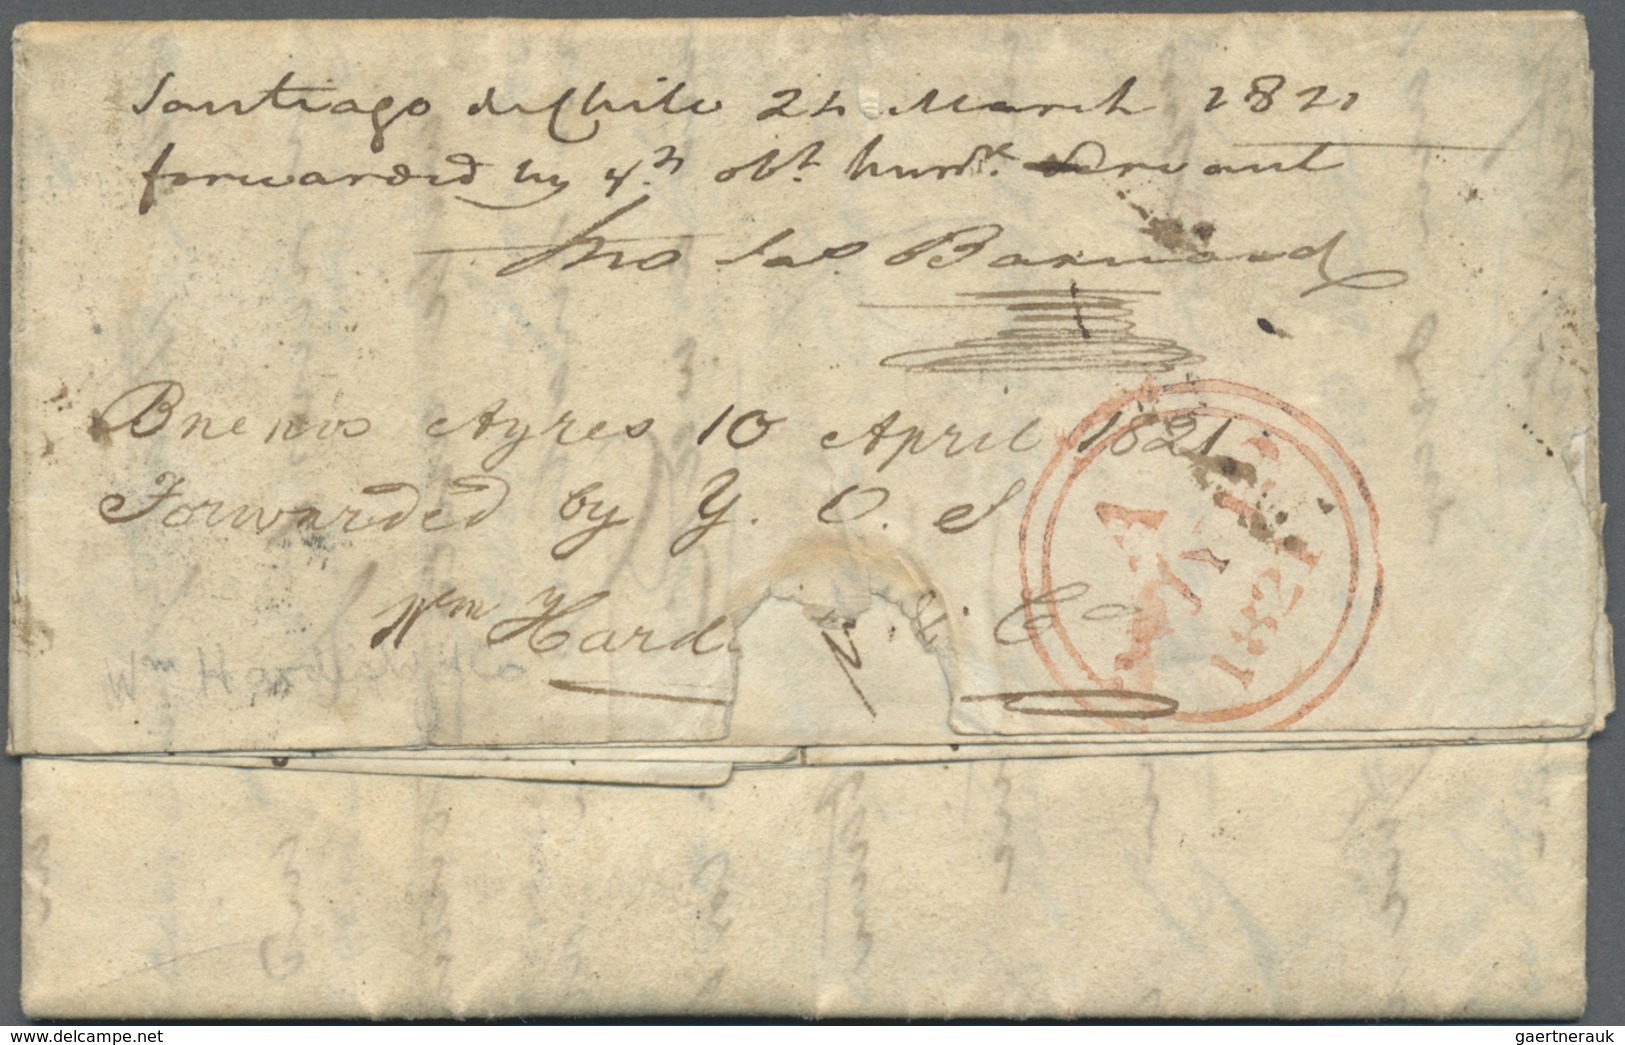 Santiago de Chile 24 March 1821
forwarded by yr. obt. humt. Servant
Jno Jas. Barnard
Buenos Ayres 10 April 1821
Forwarded by Y. O. S
Wm Hard Co
Wm Hardisty & Co
1821
gaertnerauk